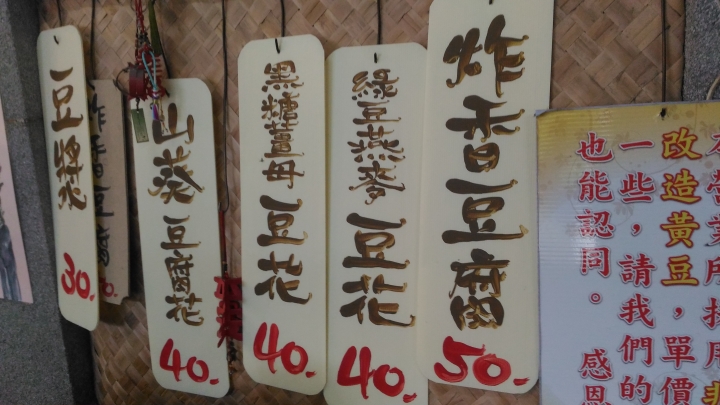 豆漿
30.
炸香豆腐
山葵豆腐花
40.
黑糖薑母豆花
40.
綠豆燕麥豆花
40.
炸香豆腐
50.
改造黃豆，單價
一些，請我們的
也能認同。感恩